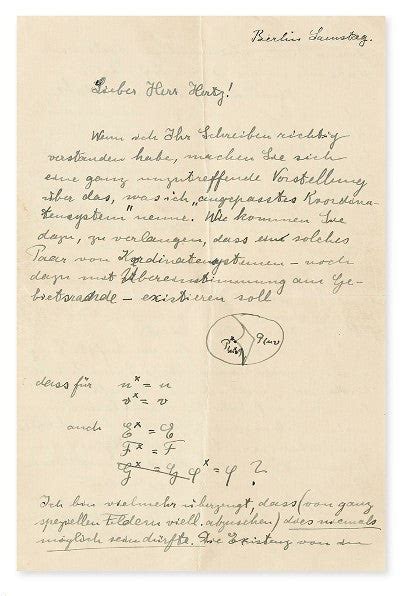 Berlin Samstag.
Lieber Herr Hertz!
Wenn ich Ihr Schreiben richtig
verstanden habe, machen Sie sich
eine ganz unzutreffende Vorstellung
über das, was ich „angepasstes Koordina-
tensystem" nenne. Wie kommen Sie
dazu, zu verlangen, dass ein solches
Paar von Koordinatensystemen – noch
dazu mit Übereinstimmung am Ge-
bietsrande – existieren soll
φ(uv)
dass für u* = u
v* = v
auch E* = E
F* = F
G* = G φ* = φ ?
Ich bin vielmehr überzeugt, dass (von ganz
speziellen Feldern viell. abgesehen) dies niemals
möglich sein dürfte. Die Existenz von